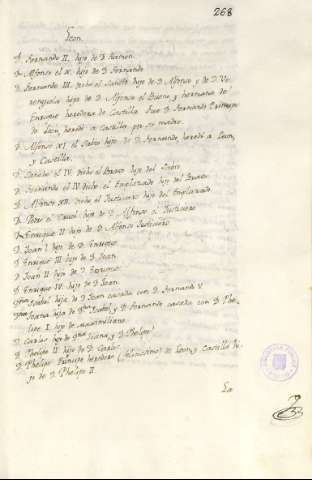 268
Leon
D. Fernando II. hijo de D. Ramon.
D. Alfonso el X. hijo de D. Fernando
D. Fernando III. dicho el Santo hijo de D. Alfonso y de D. Ve
renguela hija de D. Alfonso el Bueno, y hermana de
Enrique heredera de Castilla. Fue D. Fernando Principe
de Leon, heredó a Castilla por su madre.
D. Alfonso XI el Sabio hijo de D. Fernando, heredó a Leon,
y Castilla.
D. Sancho el IV. dicho el Bravo hijo del Sabio
D. Fernando el IV. dicho el Emplazado hijo del Bravo
D. Alfonso XII. dicho el Justiciero hijo del Emplazado
D. Pedro el Cruel hijo de D. Alfonso el Justiciero
D. Enrique II hijo de D. Alfonso Justiciero
D. Juan I. hijo de D. Enrique
D. Enrique III. hijo de D. Juan
D. Juan II hijo de D. Enrique
D. Enrique IV. hijo de D. Juan
Dña Isabel hija de D. Juan casada con D. Fernando V
Dña Juana hija de Dña Isabel, y D. Fernando casada con D. Phe
lipe I. hijo de Maximiliano
D. Carlos hijo de Dña Juana, y D. Phelipe
D. Phelipe II hijo de D. Carlos
D. Phelipe Principe heredero (felicissimo) de Leon, y Castilla hi
jo de D. Phelipe II.
La